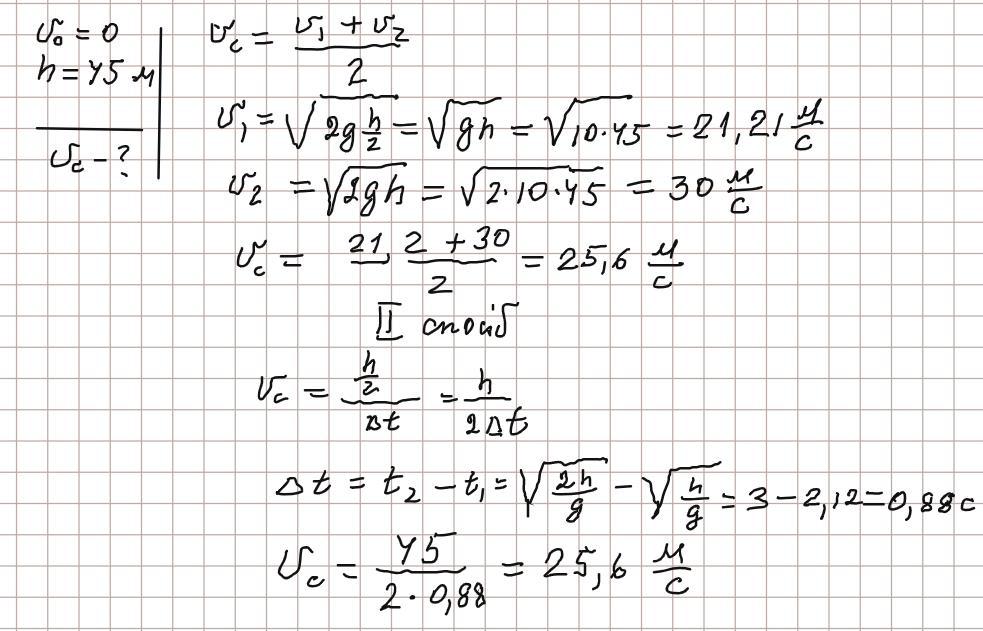 υ₀ = 0
h = 45 м
υ_c - ?
υ_c = (υ₁ + υ₂)/2
υ₁ = √(2g h/2) = √(gh) = √(10·45) = 21,21 м/с
υ₂ = √(2gh) = √(2·10·45) = 30 м/с
υ_c = (21,2 + 30)/2 = 25,6 м/с
II спосіб
υ_c = (h/2)/Δt = h/(2Δt)
Δt = t₂ - t₁ = √(2h/g) - √(h/g) = 3 - 2,12 = 0,88 с
υ_c = 45/(2·0,88) = 25,6 м/с